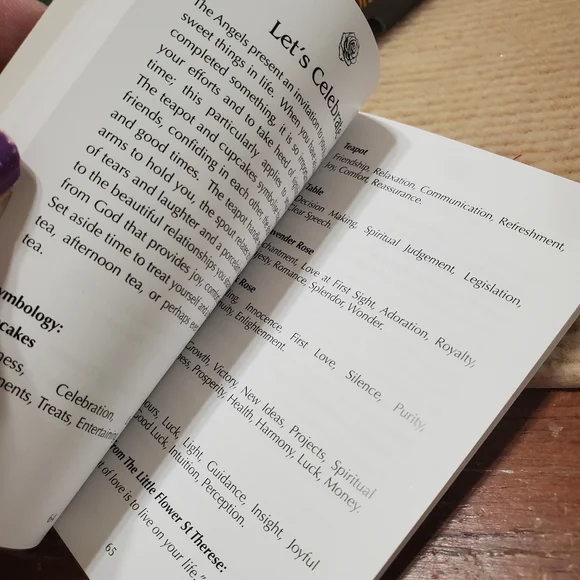 Let's Celebrate
The Angels present an invitation to
sweet things in life. When you have
completed something, it is so
your efforts and to take heed of
time: this particularly applies to
The teapot and cupcakes symbolise
friends, confiding in each other
and good times. The teapot
arms to hold you, the spout
of tears and laughter and a
to the beautiful relationships you
from God that provides joy,
Set aside time to treat yourself and
tea, afternoon tea, or perhaps
tea.
cakes
Celebration,
Treats,
Teapot
Friendship, Relaxation, Communication, Refreshment,
Joy, Comfort, Reassurance.
Table
Decision Making, Spiritual Judgement, Legislation,
Clear Speech.
Rose
Love at First Sight, Adoration, Royalty,
Romance, Splendor, Wonder.
Rose
Innocence, First Love, Silence, Purity,
Enlightenment.
Growth, Victory, New Ideas, Projects, Spiritual
Prosperity, Health, Harmony, Luck, Money.
Luck, Light, Guidance, Insight, Joyful
Good Luck, Intuition, Perception.
From The Little Flower St Therese:
of love is to live on your life."
65